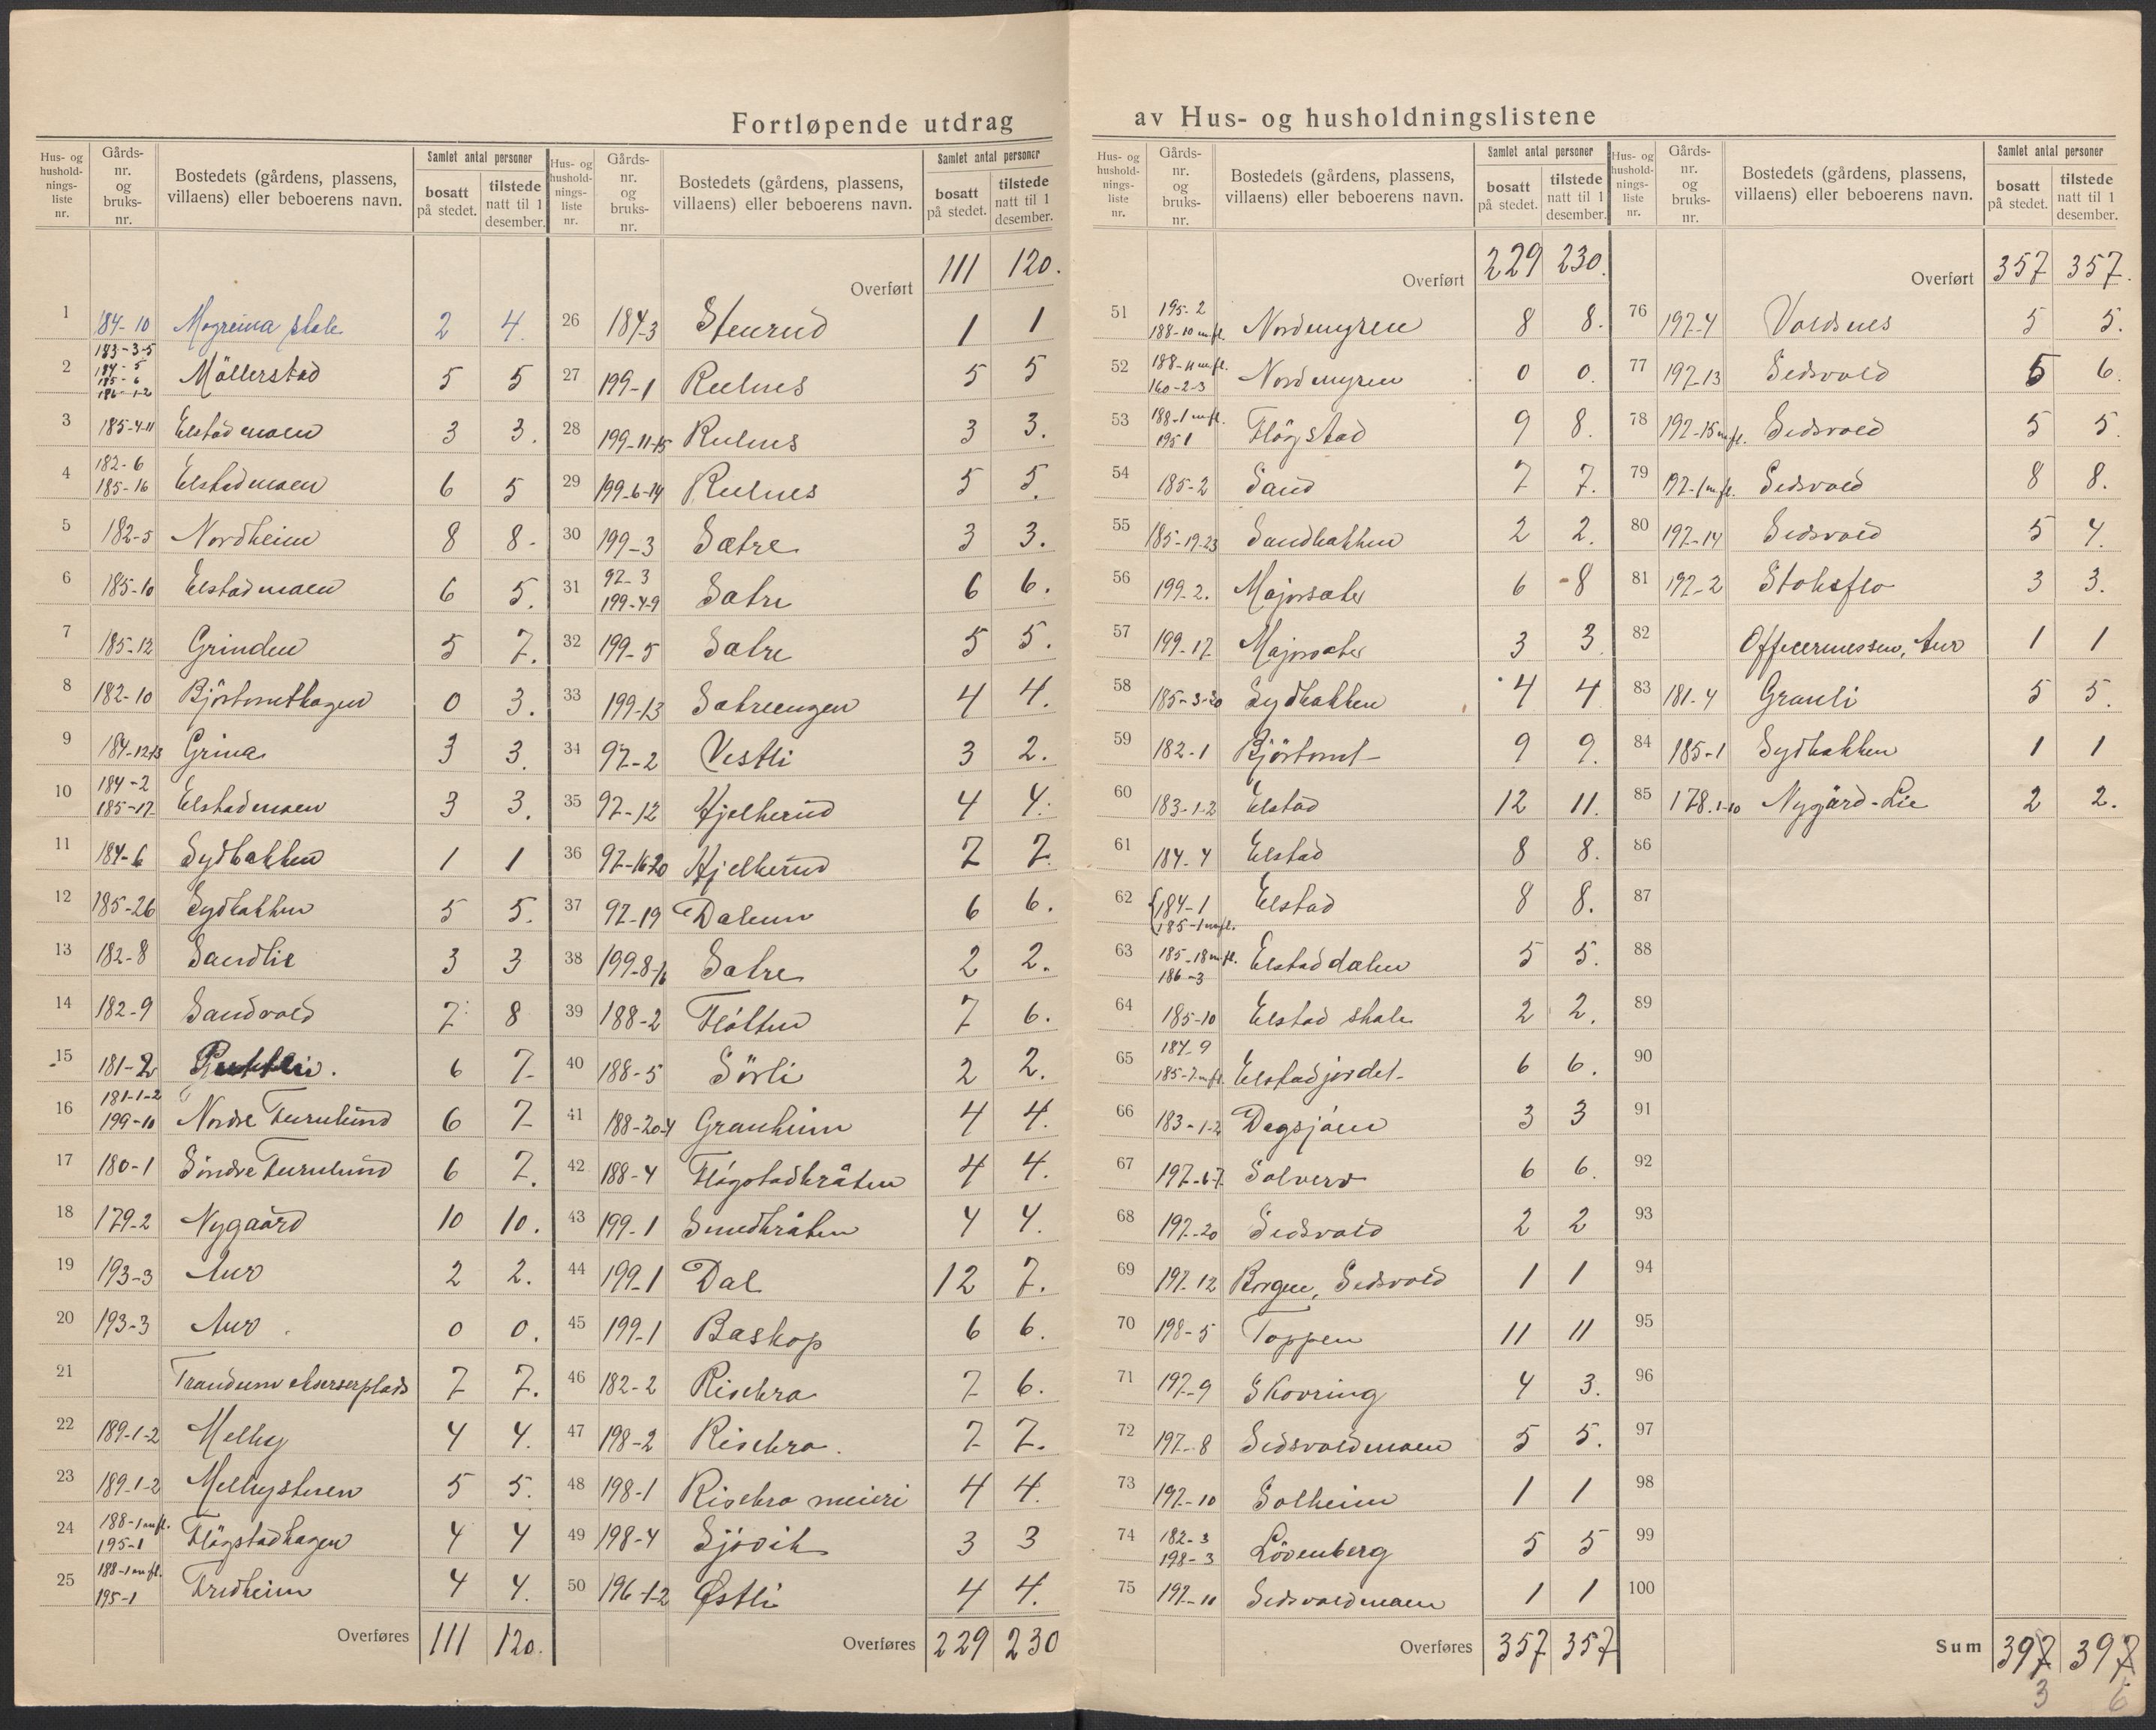 Fortløpende utdrag av Hus- og husholdningslistene
Hus- og husholdnings-liste nr. | Gårds-nr. og bruks-nr. | Bostedets (gårdens, plassens, villaens) eller beboerens navn. | Samlet antal personer | bosatt på stedet. | tilstede natt til 1 desember.
1 184-10 Mogreina skole 2 4.
2 183-3-5 184-5 185-6 186-1-2 Möllerstad 5 5
3 185-4-11 Elstadmoen 3 3.
4 182-6 185-16 Elstadmoen 6 5
5 182-5 Nordheim 8 8.
6 185-10 Elstadmoen 6 5.
7 185-12 Grinden 5 7.
8 182-10 Björtomthagen 0 3.
9 184-12-13 Grina 3 3.
10 184-2 185-17 Elstadmoen 3 3.
11 184-6 Sydbakken 1 1
12 185-26 Sydbakken 5 5.
13 182-8 Sandlie 3 3
14 182-9 Sandvold 7 8
15 181-2 6 7
16 181-1-2 199-10 Nordre Furulund 6 7
17 180-1 Söndre Furulund 6 7.
18 179-2 Nygaard 10 10.
19 193-3 Aur 2 2.
20 193-3 Aur. 0 0.
21 Trandum ekserserplads 7 7.
22 189-1-2 Melby 4 4.
23 189-1-2 Melbystuen 5 5.
24 188-1 m.fl. 195-1 Flögstadhagen 4 4
25 188-1 m.fl. 195-1 Fredheim 4 4.
Overføres 111 120.
Overført 111 120.
26 184-3 Stenrud 1 1
27 199-1 Rulnes 5 5
28 199-11-15 Rulnes 3 3.
29 199-6-14 Rulnes 5 5.
30 199-3 Sætre 3 3.
31 97-3 199-4-9 Sætre 6 6.
32 199-5 Sætre 5 5.
33 199-13 Sætreengen 4 4.
34 97-2 Vestli 3 2.
35 97-12 Hjelkerud 4 4.
36 97-16-20 Hjelkerud 7 7.
37 97-19 Dalum 6 6.
38 199-8-16 Sætre 2 2.
39 188-2 Flåtten 7 6.
40 188-5 Sörli 2 2.
41 188-20-4 Granheim 4 4.
42 188-4 Flågstadbråten 4 4.
43 199-1 Smedbråten 4 4.
44 199-1 Dal 12 7.
45 199-1 Baskop 6 6.
46 182-2 Risebro 7 6.
47 198-2 Risebro. 7 7.
48 198-1 Risebro meieri 4 4.
49 198-4 Sjövik 3 3
50 196-1-2 Østli 4 4.
Overføres 229 230
Hus- og husholdnings-liste nr. | Gårds-nr. og bruks-nr. | Bostedets (gårdens, plassens, villaens) eller beboerens navn. | Samlet antal personer | bosatt på stedet. | tilstede natt til 1 desember.
Overført 229 230.
51 195-2 188-10 m.fl. Nordmyren 8 8.
52 188-11 m.fl. 160-2-3 Nordmyren 0 0.
53 188-1 m.fl. 195-1 Flögstad 9 8.
54 185-2 Sand 7 7.
55 185-19-23 Sandbakken 2 2.
56 199-2. Majorsæter 6 8
57 199-17 Majorsæter 3 3
58 185-3-20 Sydbakken 4 4
59 182-1 Björtomt 9 9.
60 183-1-2 Elstad 12 11.
61 184-4 Elstad 8 8.
62 184-1 185-1 m.fl. Elstad 8 8.
63 185-18 m.fl. 186-3 Elstaddalen 5 5.
64 185-10 Elstad skole 2 2.
65 184-9 185-7 m.fl. Elstadjordet 6 6.
66 183-1-2 Dagsjöen 3 3
67 197-6-7 Solverv 6 6.
68 197-20 Sedsvold 2 2
69 197-12 Borgen, Sedsvold 1 1
70 198-5 Toppen 11 11
71 197-9 Skovring 4 3.
72 197-8 Sedsvoldmoen 5 5.
73 197-10 Solheim 1 1
74 182-3 198-3 Lövenberg 5 5
75 197-11 Sedsvoldmoen 1 1
Overføres 357 357
Overført 357 357.
76 197-4 Voldsnes 5 5.
77 197-13 Sedsvold 5 6.
78 197-15 m.fl. Sedsvold 5 5.
79 197-1 m.fl. Sedsvold 8 8.
80 197-14 Sedsvold 5 4.
81 197-2 Stoksflo 3 3.
82 Officermessen, Aur 1 1
83 181-4 Granli 5 5.
84 185-1 Sydbakken 1 1
85 178.1-10 Nygård-Lie 2 2.
86
87
88
89
90
91
92
93
94
95
96
97
98
99
100
Sum 397 397
3 6